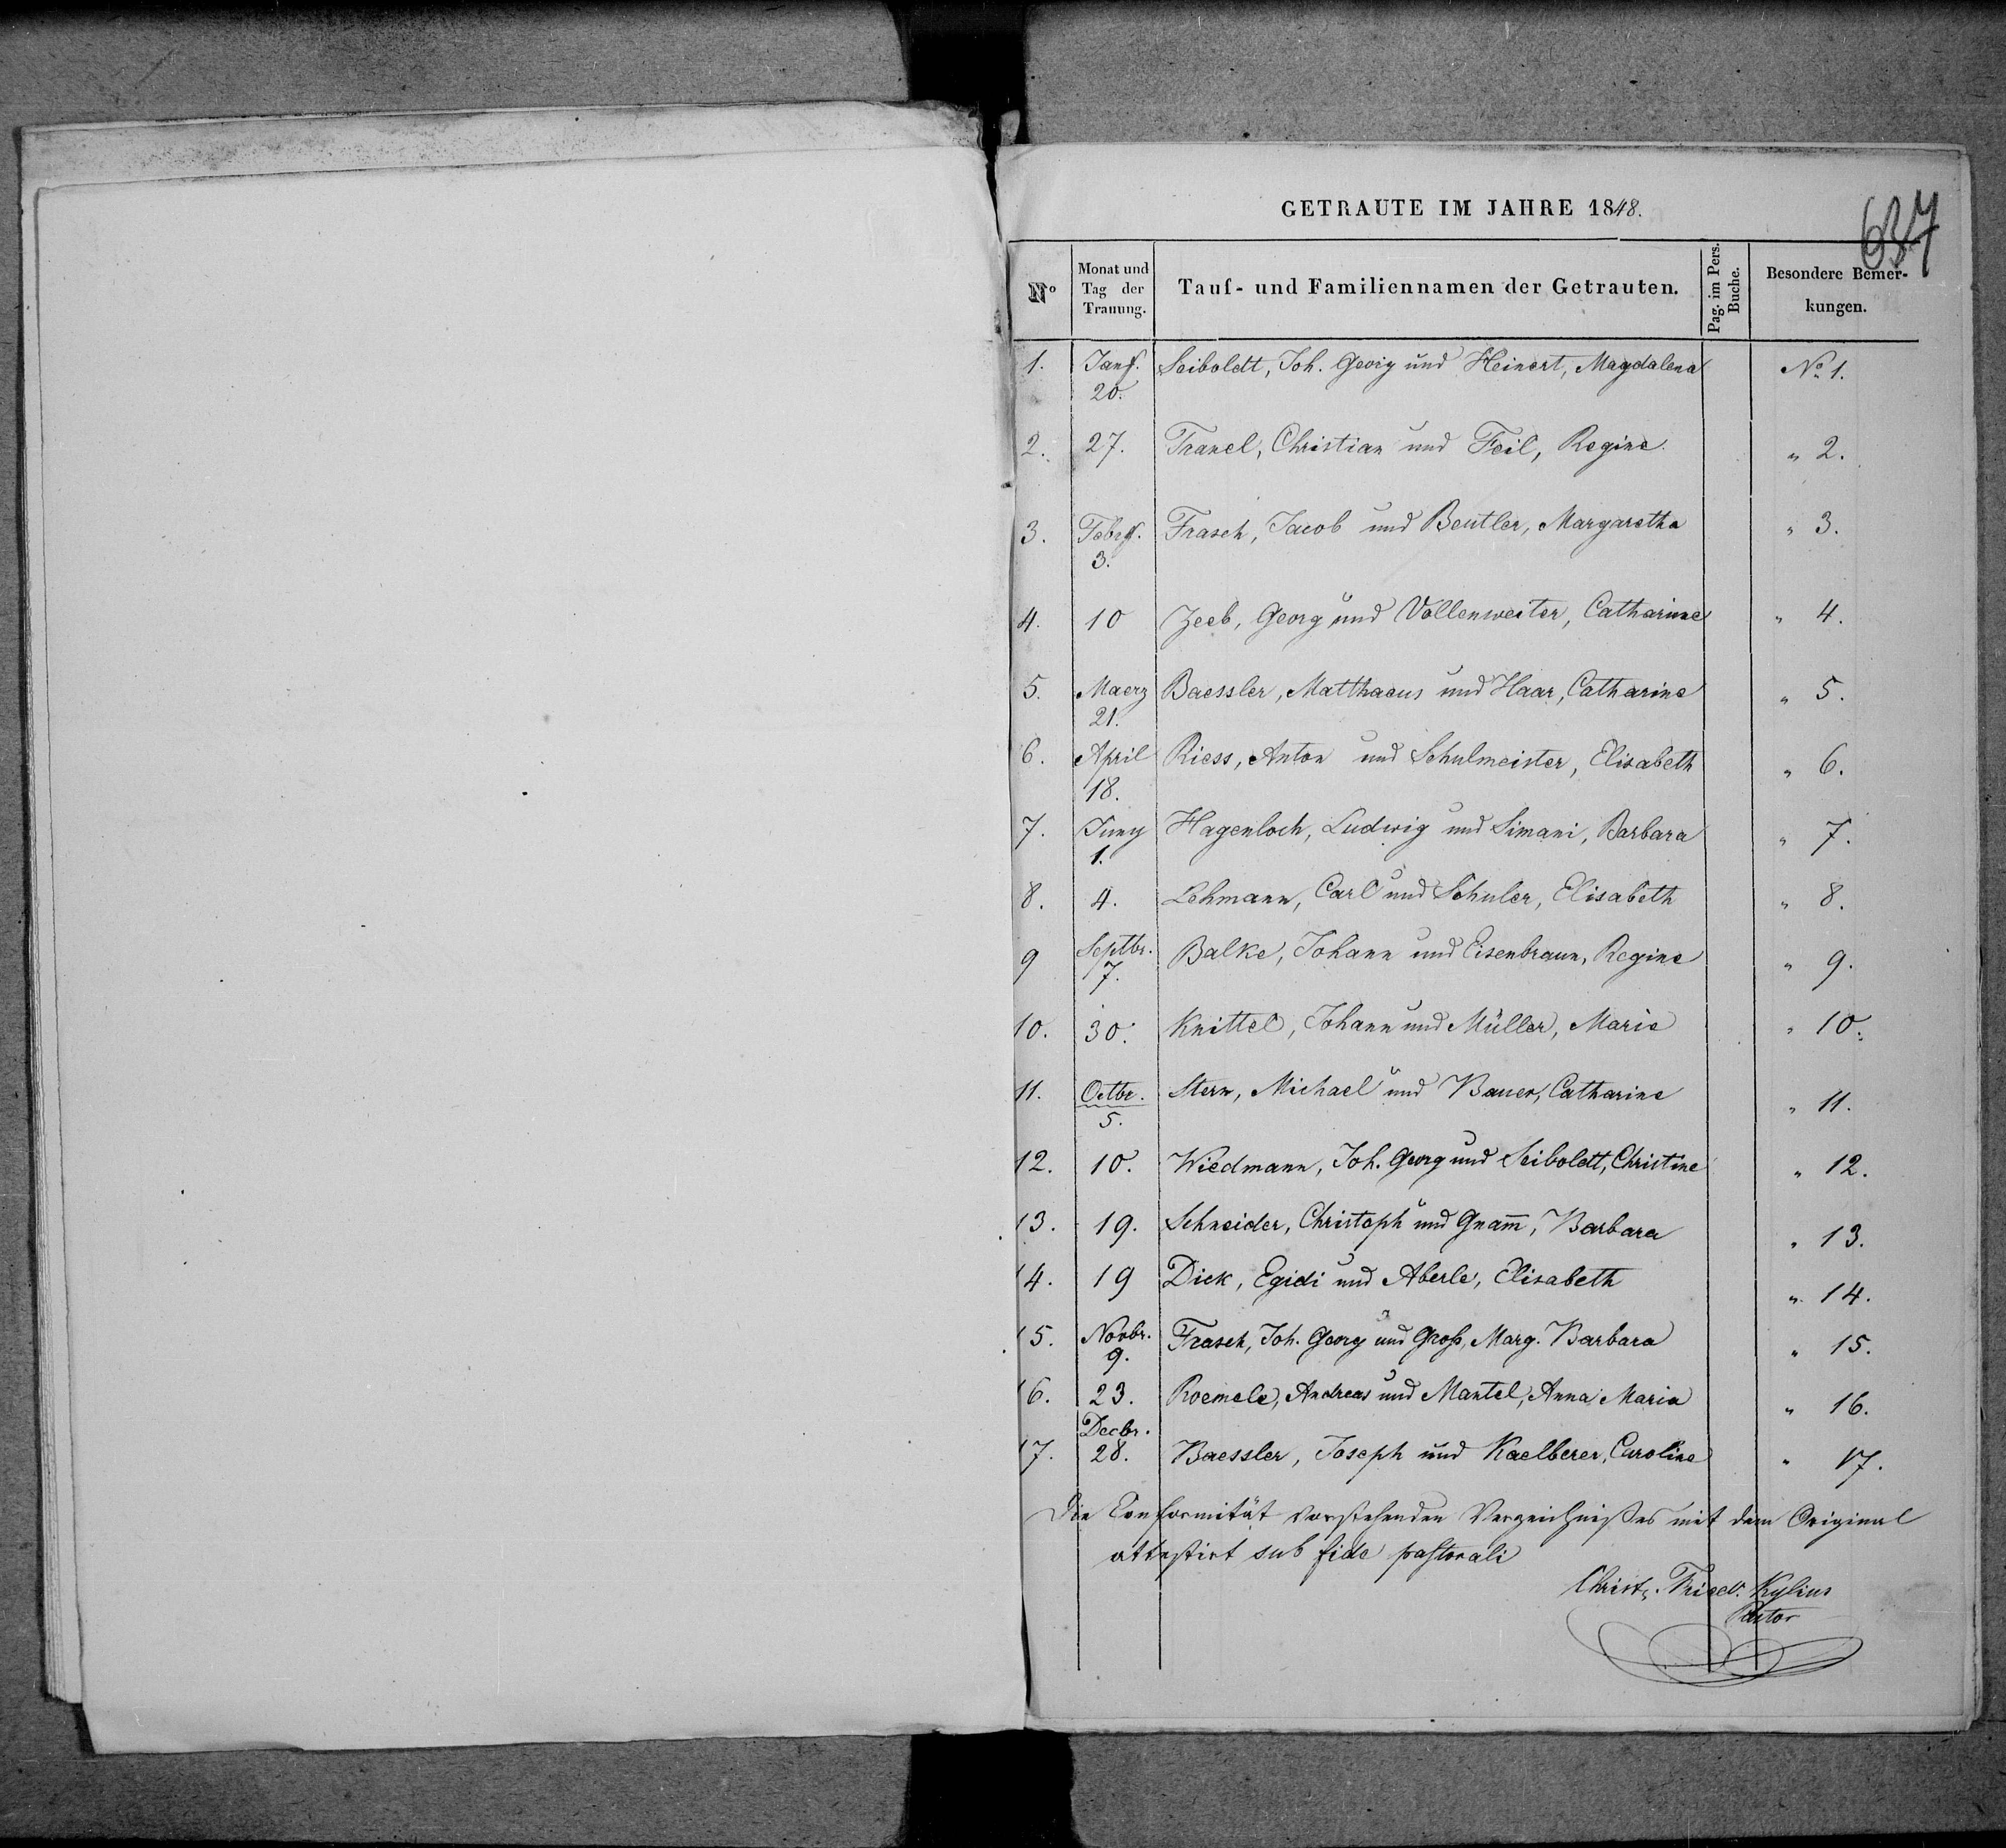 GETRAUTE IM JAHRE 1848.
637
No Monat und Tag der Trauung. Tauf- und Familiennamen der Getrauten. Pag. im Pers. Buche. Besondere Bemerkungen.
1. Seiboldt, Joh. Georg und Heinert, Magdalena No. 1.
20.
2. 27. Tranel, Christian und Feil, Regine. " 2.
3. Frasch, Jacob und Beutler, Margaretha " 3.
3.
4. 10 Zeeb, Georg und Vollenweiter, Catharine " 4.
5. Maerz Baessler, Matthaeus und Haar, Catharine " 5.
21.
6. April Riess, Anton und Schulmeister, Elisabeth " 6.
18.
7. Juny Hagenloch, Ludwig und Simani, Barbara " 7.
1.
8. 4. Lehmann, Carl und Schuler, Elisabeth " 8.
9 Septbr. Balke, Johann und Eisenbraun, Regine " 9.
7.
10. 30. Knittel, Johann und Müller, Marie " 10.
11. Octbr. Stern, Michael und Bauer, Catharine " 11.
5.
12. 10. Wiedmann, Joh. Georg und Seiboldt, Christine " 12.
13. 19. Schneider, Christoph und Gnam̄, Barbara " 13.
14. 19 Dick, Egidi und Aberle, Elisabeth " 14.
15. Novbr. Frasch, Joh. Georg und Groß, Marg. Barbara " 15.
9.
16. 23. Roemele, Andreas und Mantel, Anna Maria " 16.
Decbr.
17. 28. Baessler, Joseph und Kaelberer, Caroline " 17.
Die Conformität vorstehenden Verzeichnißes mit dem Original
attestirt sub fide pastorali
Christ. Fried. Kylius
Pastor